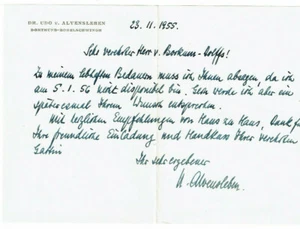 DR. UDO v. ALVENSLEBEN
23. 11. 1955.
Sehr verehrter Herr v.
Zu meinem lebhaften Bedauern muss ich Ihnen absagen, da ich
am 5.1.56 nicht disponibel bin. Gern werde ich aber ein
späteres mal Ihrem Wunsch entsprechen.
Mit herzlichen Empfehlungen von Haus zu Haus, Dank für
Ihre freundliche Einladung und Handkuss Ihrer verehrten
Gattin
Ihr sehr ergebener
U. Alvensleben.